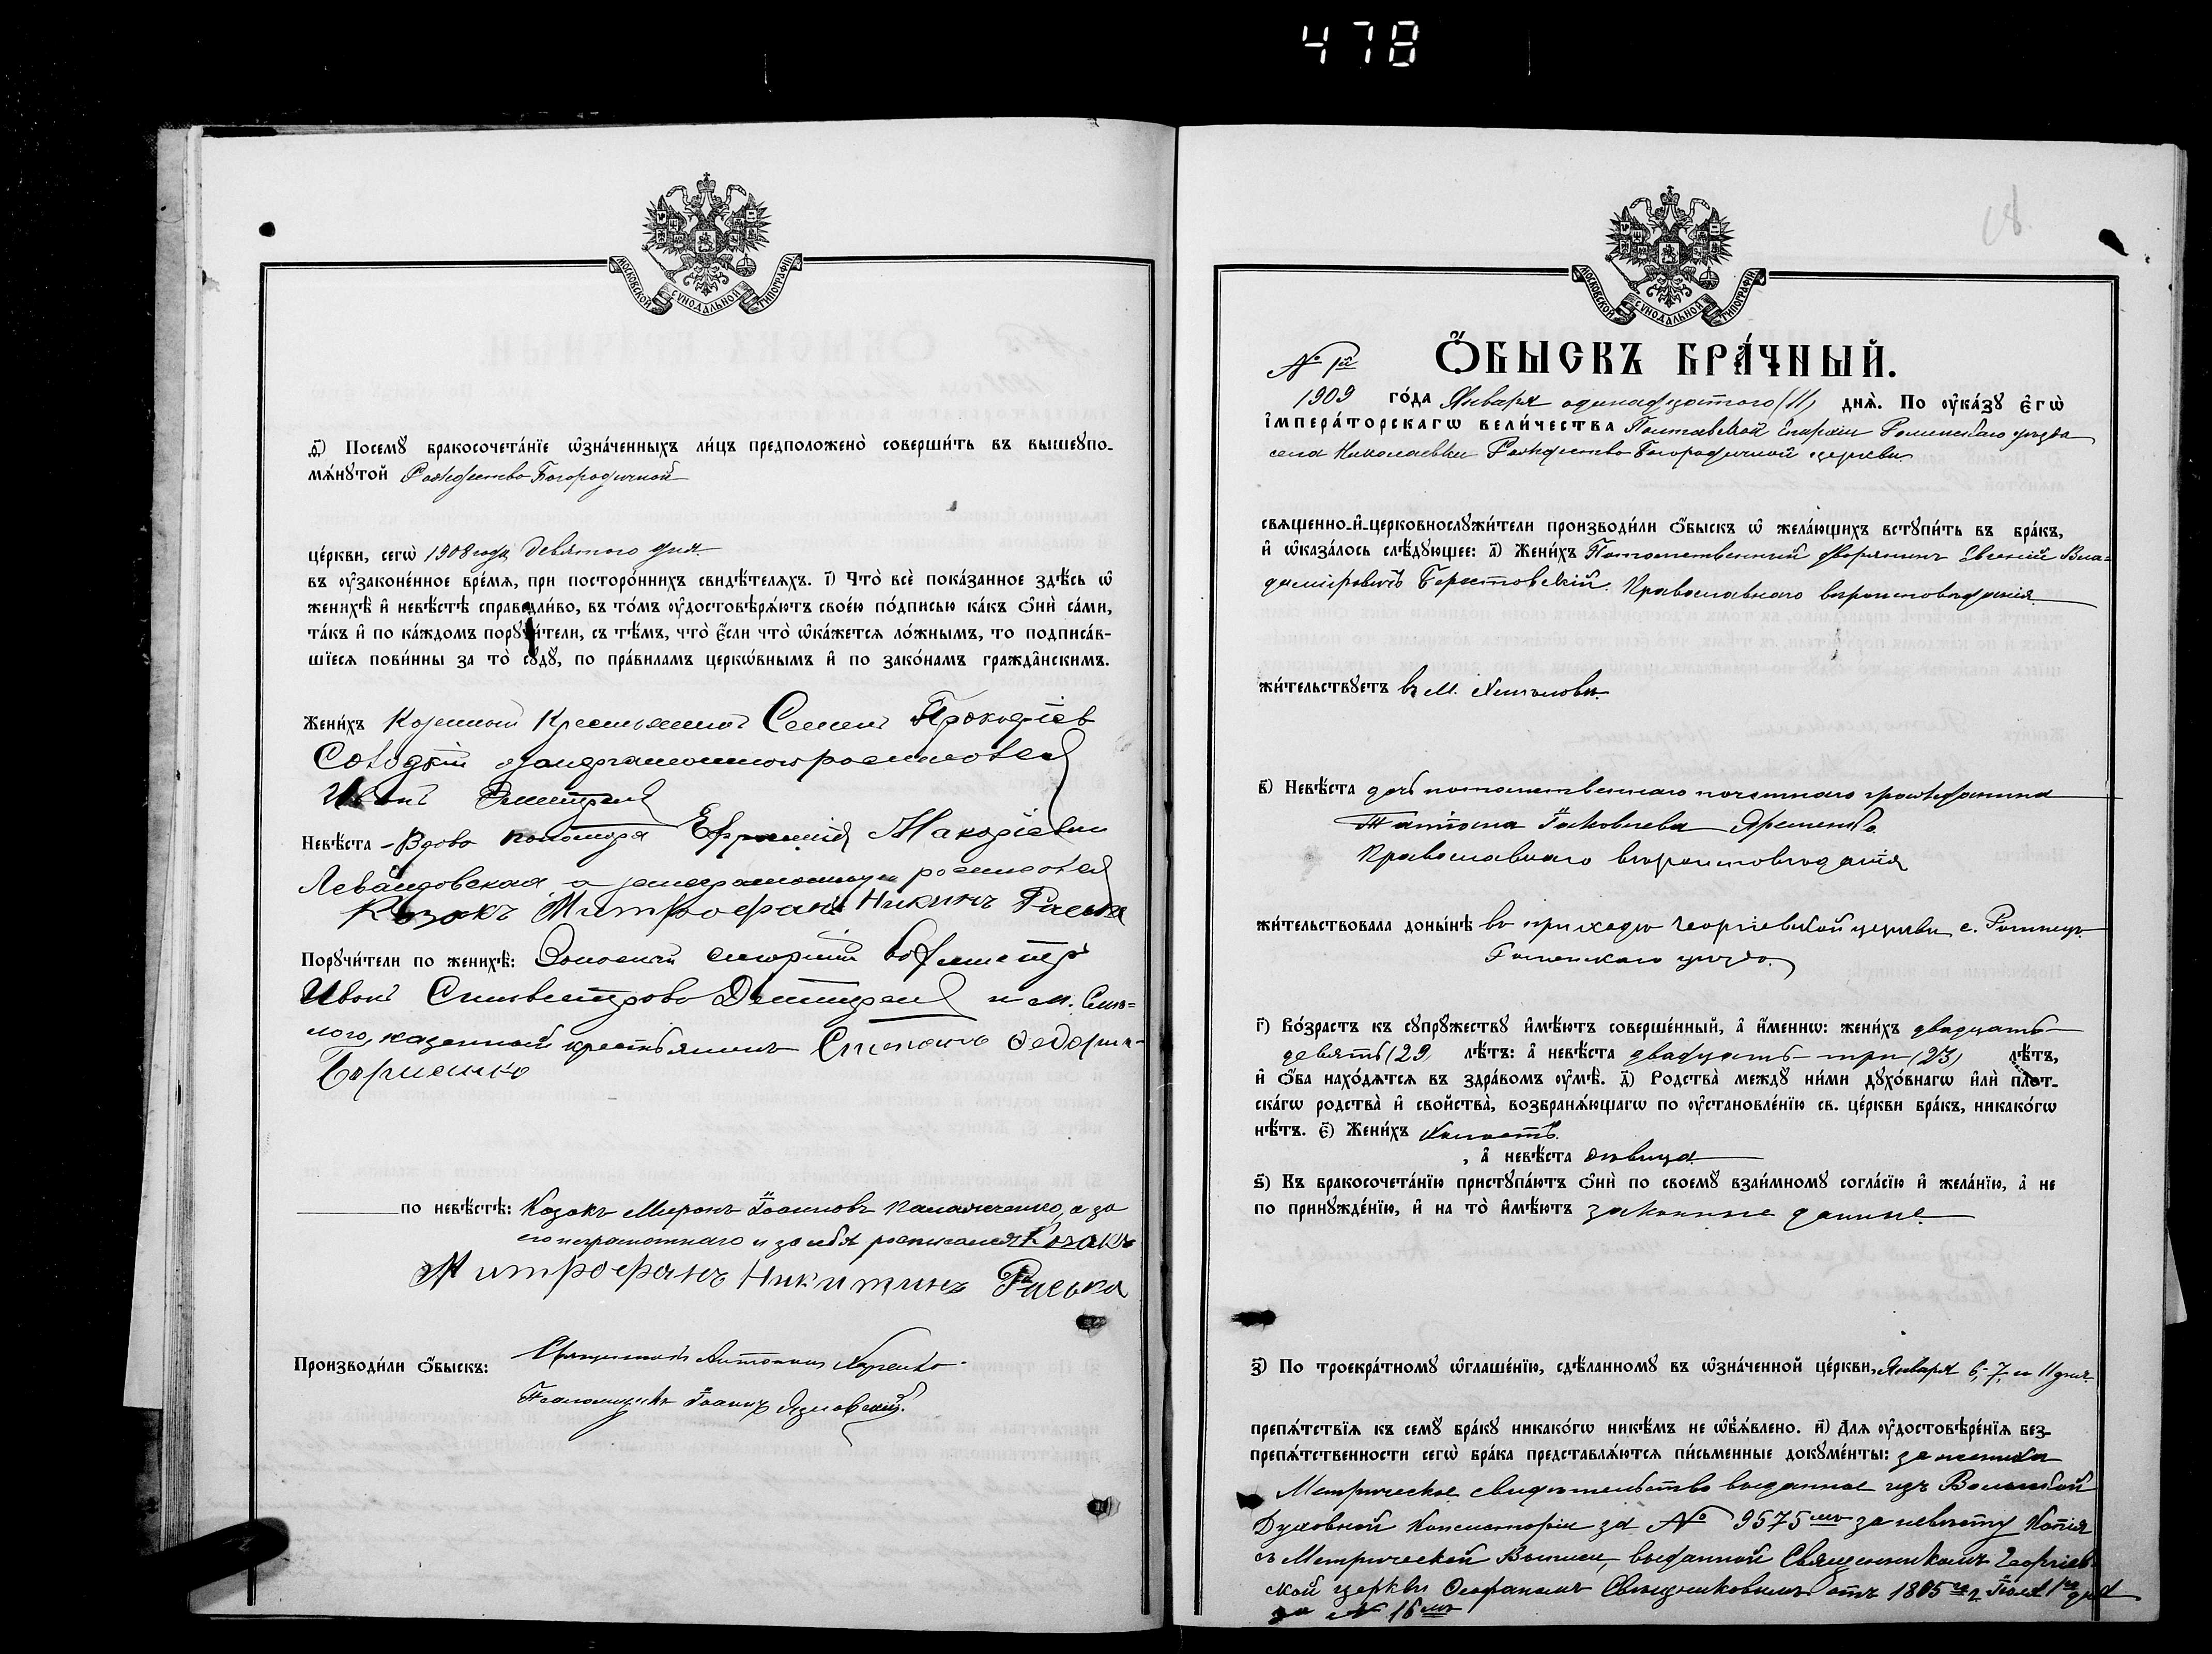 478
МОСКОВСКОЙ СУНОДАЛЬНОЙ ТИПОГРАФІИ
д҃) Посемꙋ бракосочета́нїе ѡ҆зна́ченныхъ ли́цъ предположено̀ соверши́ть въ вышеꙋпо-
мѧ́нꙋтой Рождество Богородичной
це́ркви, сегѡ̀ 1908 года девятого дня
въ ᲂу҆законе́нное вре́мѧ, при посторо́ннихъ свидѣ́телѧхъ. і҃) Что̀ всѐ пока́занное здѣ́сь ѡ҆
женихѣ̀ и҆ невѣ́стѣ справедли́во, въ то́мъ ᲂу҆достовѣрѧ́ютъ свое́ю по́дписью ка́къ ѻ҆нѝ са́ми,
та́къ и҆ по ка́ждомъ порꙋчи́тели, съ тѣ́мъ, что̀ є҆́сли что̀ ѡ҆ка́жетсѧ ло́жнымъ, то подписа́в-
шїесѧ пови́нны за то̀ сꙋдꙋ̀, по пра́виламъ церкѡ́внымъ и҆ по зако́намъ гражда̑нскимъ.
Жени́хъ Казенный Крестьянинъ Семенъ Прокофіев
Иванъ Дмитренко
Невѣ́ста - Вдова Евфимія
Левандовская а
Козакъ Митрофанъ Никит Раевка
Порꙋчи́тели по женихѣ̀:
Иванъ Сильвестровъ и м. Смѣ-
лого, казенный крестьянинъ Федорин
Борисенко
по невѣ́стѣ: Козакъ Миронъ Іоанновъ, а за
его неграмотнаго и за себя росписался Козакъ
Митрофанъ Никитинъ Раевка
Производи́ли ѻ҆́быскъ: Священникъ Антоній
Псаломщикъ Іоаннъ
МОСКОВСКОЙ СУНОДАЛЬНОЙ ТИПОГРАФІИ
№ 1й
Ѻ҆́БЫСКЪ БРА́ЧНЫЙ.
1909 го́да Января одинадцатого (11) днѧ̀. По ᲂу҆ка́зꙋ є҆гѡ̀
і҆мпера́торскагѡ вели́чества Полтавской Епархіи Роменскаго уѣзда
села Николаевки Рождество Богородичной церкви
свѧще́нно-и҆-церковнослꙋжи́тели производи́ли ѻ҆́быскъ ѡ҆ жела́ющихъ встꙋпи́ть въ бра́къ,
и҆ ѡ҆каза́лось слѣ́дꙋющее: а҃) Жени́хъ Потомственный дворянинъ Евгеній Вла-
диміровичъ Берестовскій. Православнаго вѣроисповѣданія
жи́тельствꙋетъ въ м.
в҃) Невѣ́ста дочь потомственнаго почетнаго гражданина
Татіана Іаковлева Яременко
Православнаго вѣроисповѣданія
жи́тельствовала доны́нѣ въ приходѣ Георгіевской церкви с.
уѣзда
г҃) Во́зрастъ къ сꙋпрꙋ́жествꙋ и҆мѣ́ютъ соверше́нный, а҆ и҆́меннѡ: жени́хъ двадцать
девять (29) лѣ́тъ: а҆ невѣ́ста двадцать три (23) лѣ́тъ,
и҆ ѻ҆́ба нахо́дѧтсѧ въ здра́вомъ ᲂу҆мѣ̀. д҃) Родства̀ междꙋ̀ ни́ми дꙋхо́внагѡ и҆лѝ пло́т-
скагѡ родства̀ и҆ сво́йства̀, возбранѧ́ющагѡ по ᲂу҆становле́нїю св. це́ркви бра́къ, никако́гѡ
нѣ́тъ. є҃) Жени́хъ холостъ
, а҆ невѣ́ста дѣвица
ѕ҃) Къ бракосочета́нїю пристꙋпа́ютъ ѻ҆нѝ по своемꙋ̀ взаи́мномꙋ согла́сїю и҆ жела́нїю, а҆ не
по принꙋжде́нїю, и҆ на то̀ и҆мѣ́ютъ законные данные
з҃) По троекра́тномꙋ ѡ҆глаше́нїю, сдѣ́ланномꙋ въ ѡ҆зна́ченной це́ркви, Января 6, 7, и 11 дня
препѧ́тствїѧ къ семꙋ̀ бра́кꙋ никако́гѡ никѣ́мъ не ѡ҆б̾ѧ́влено. и҃) Длѧ ᲂу҆достовѣре́нїѧ без-
препѧ́тственности сегѡ̀ бра́ка представлѧ́ютсѧ пи́сьменные докꙋме́нты: за жениха
Метрическое свидѣтельство выданное изъ Волынской
Духовной Консисторіи за № 9575мъ за невѣсту Копія
съ Метрической Выписи, выданной Священникомъ Георгіев
ской церкви Феофаномъ отъ 1885 г. Іюля 1го дня
за № 16мъ